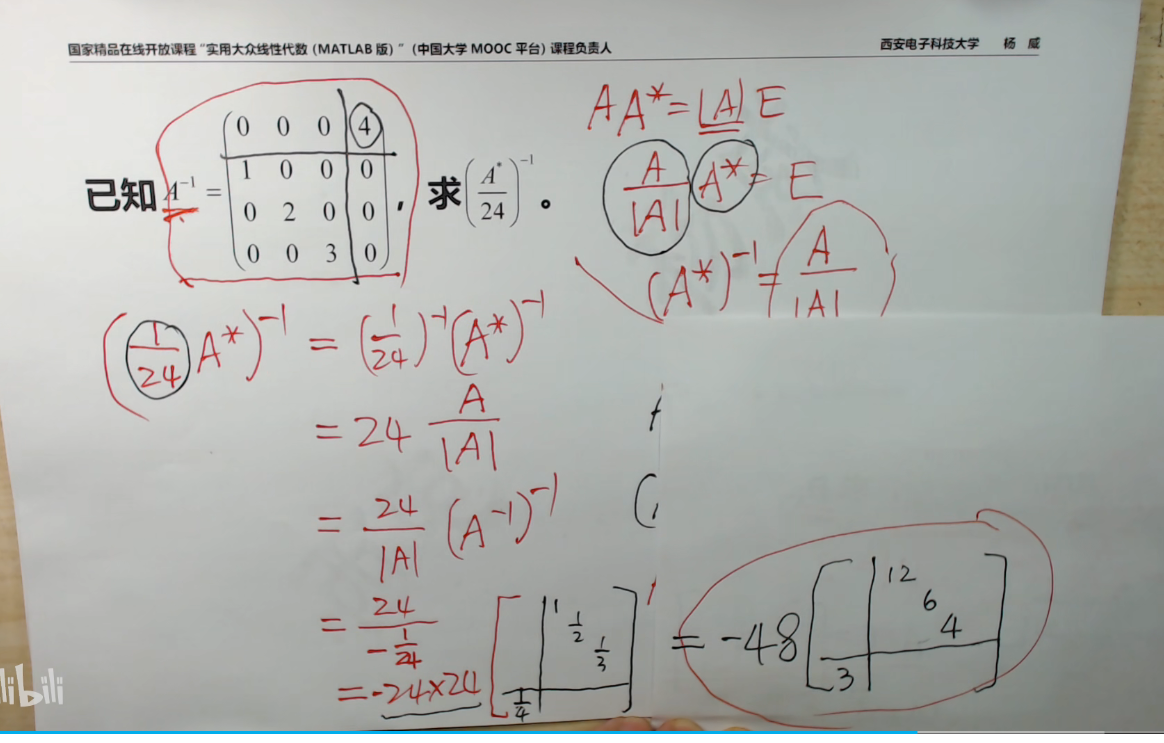 国家精品在线开放课程“实用大众线性代数（MATLAB 版）”（中国大学 MOOC 平台）课程负责人 西安电子科技大学 杨 威
AA* = |A| E
已知 A⁻¹ = (0 0 0 4
1 0 0 0
0 2 0 0
0 0 3 0)，求(A*/24)⁻¹。
A/|A| A* = E
(A*)⁻¹ = A/|A|
(1/24 A*)⁻¹ = (1/24)⁻¹ (A*)⁻¹
= 24 A/|A|
= 24/|A| (A⁻¹)⁻¹
= 24/(-1/24)
= -24×24 [1 1/2 1/3 1/4]
= -48 [12 6 4 3]
bilibili